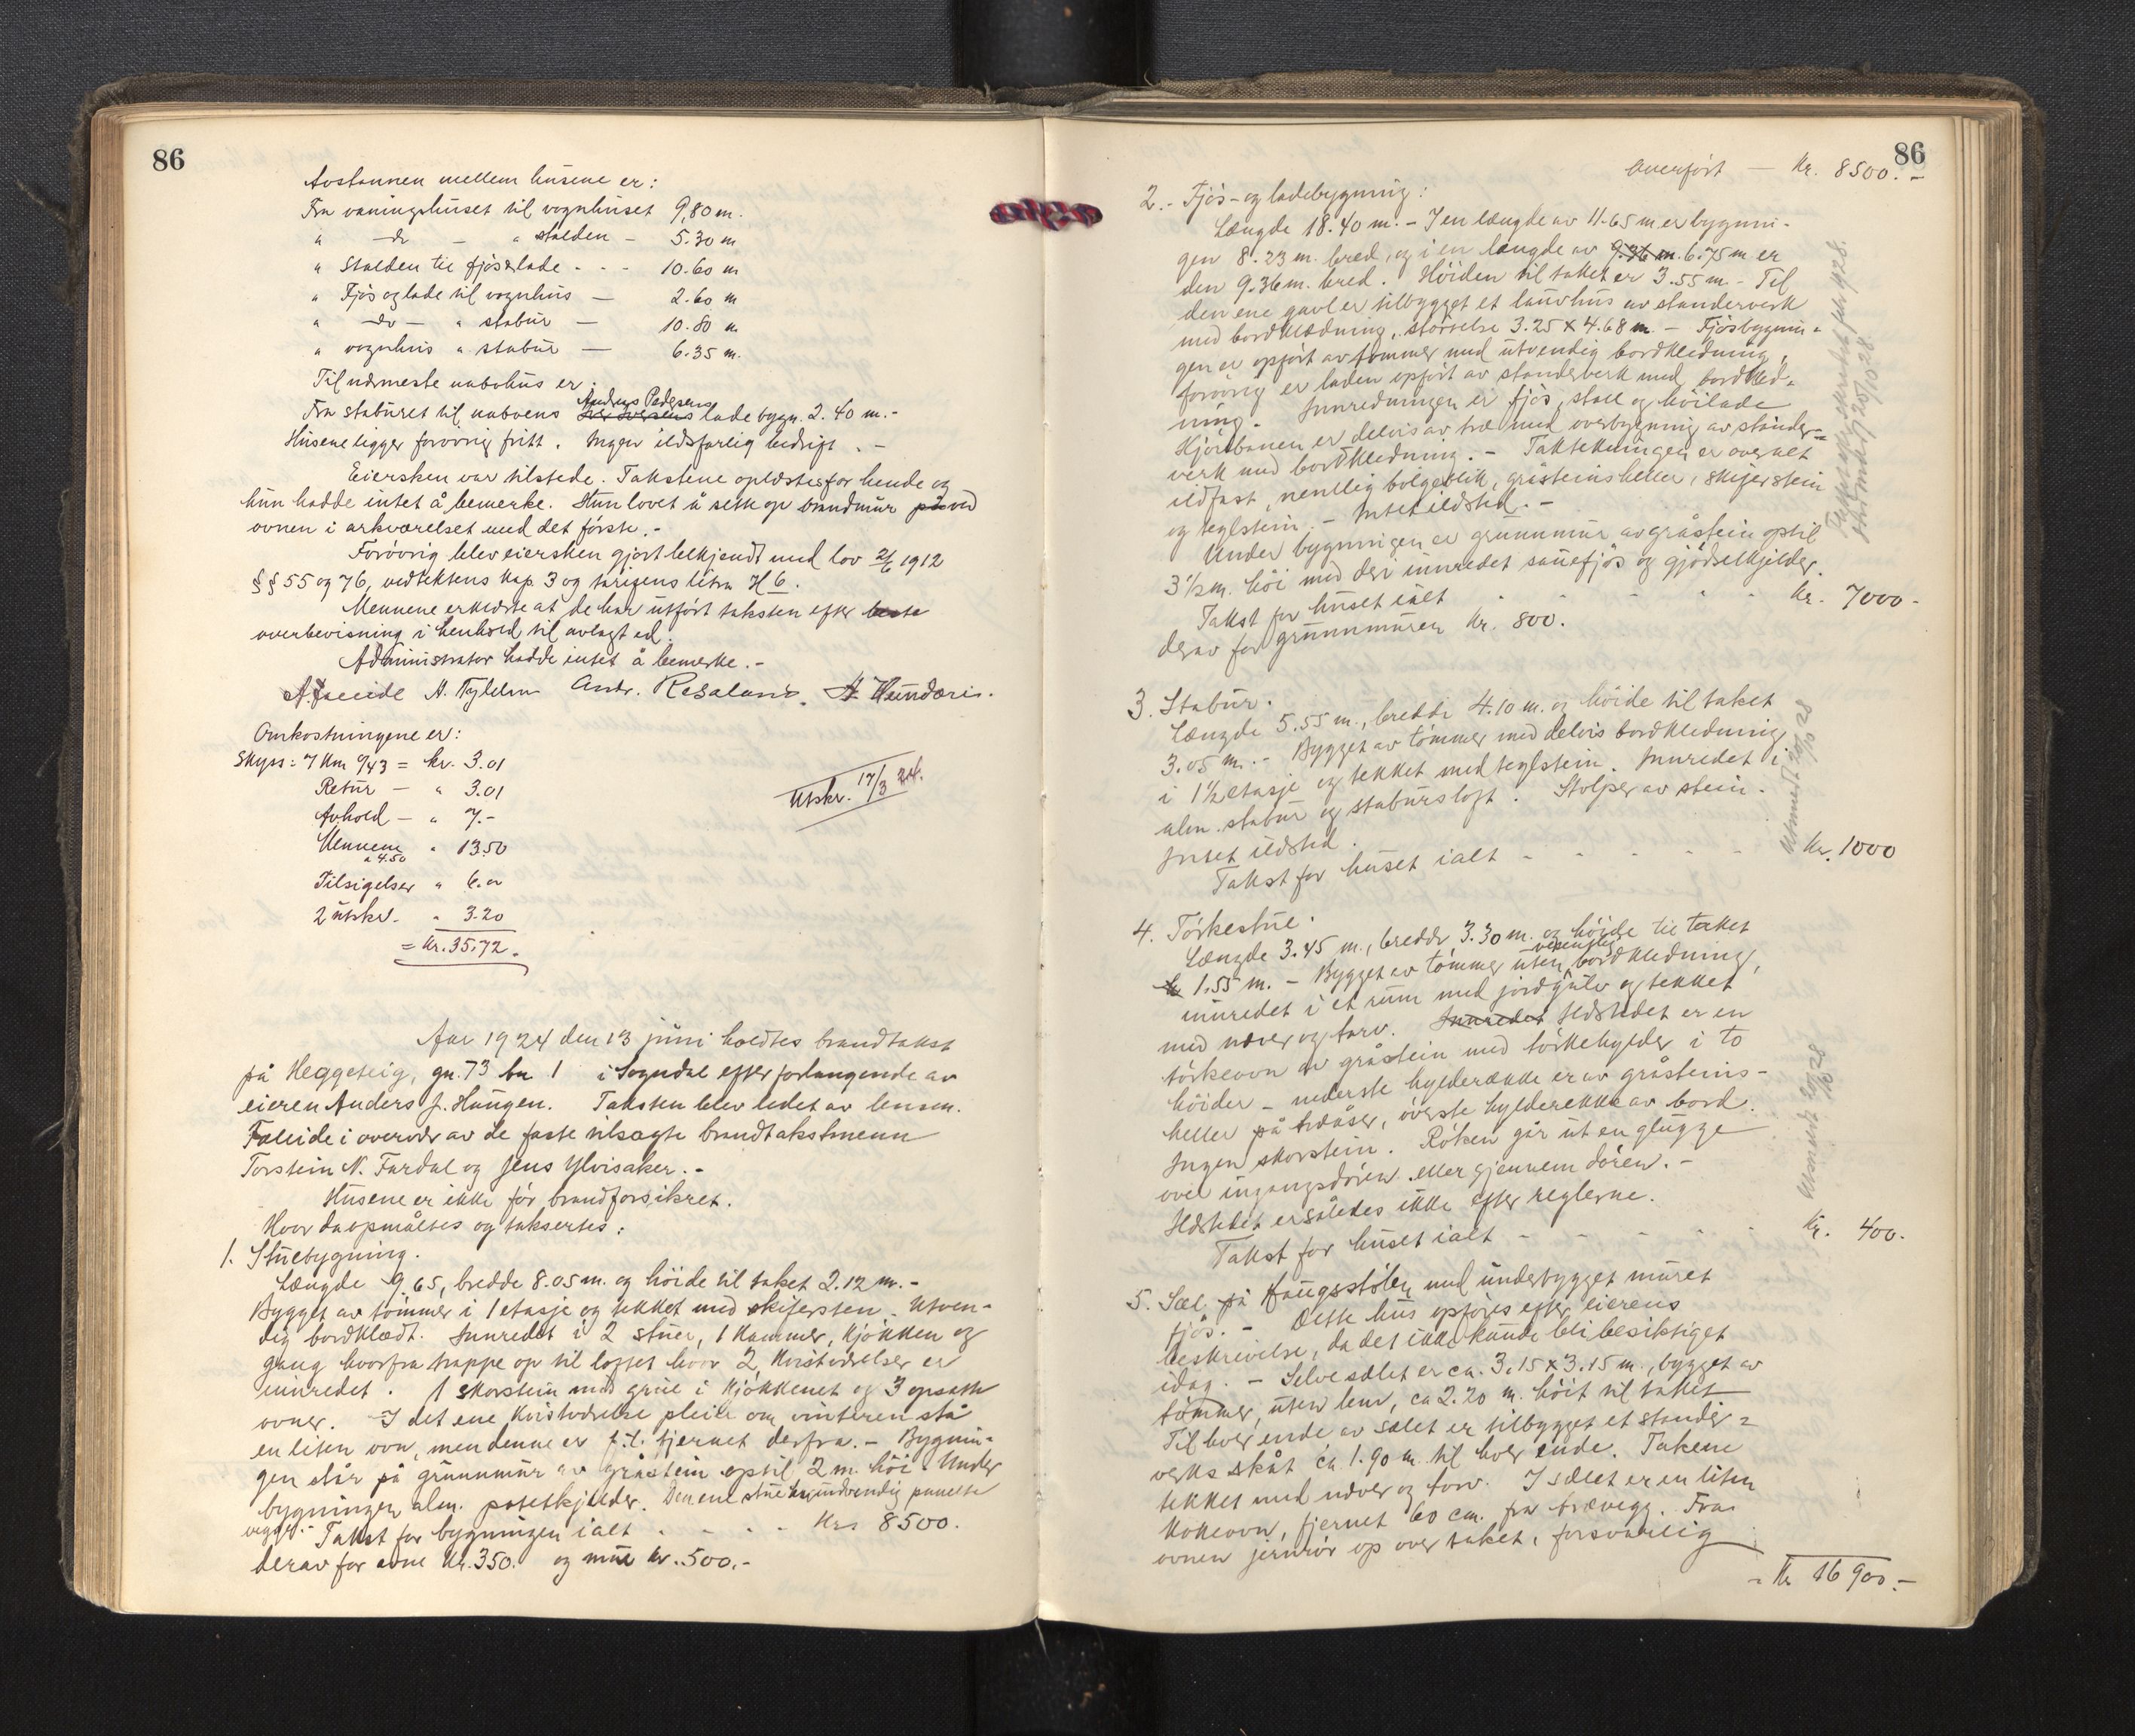 86
Avstannen mellem husene er:
Fra våningshuset til vognhuset 9,80 m.
" -do- " stalden - 5.30 m
" Stalden til fjös & lade - - - 10.60 m
" Fjös og lade til vognhus - 2.60 m
" -do- " stabur - 10.80 m
" vognhus " stabur - 6.35 m.
Til nærmeste nabohus er:
Anders Pedersens
Fra staburet til naboens lade bygn. 2.40 m.-
Husene ligger forøvrig fritt. Ingen ildsfarlig bedrift. -
Eiersken var tilstede. Takstene oplæstes for hende og
hun hadde intet å bemerke. Hun lovet å sette op brandmur på ved
ovnen i arkværelset med det første.-
Forövrig blev eiersken gjort bekjendt med lov 2/6 1912
§§ 55 og 76, vedtektens kap. 3 og tarifens litra H 6.
Mennene erklærte at de har utfört taksten efter beste
overbevisning i henhold til avlagt ed.
Administrator hadde intet å bemerke.-
A. Faleide A. Fylden Andr. Resaland. H. Hundere.
Omkostningene er:
Skyss: 7 km a/43 = kr. 3.01
Retur - " 3.01
Avhold - " 7.-
Mennene " 13.50
a 4.50
Tilsigelser " 6.00
2 utskr. " 3.20
= Kr. 35,72.
Utskr. 17/3 24.
Aar 1924 den 13 juni holdtes brandtakst
på Heggeteig, gn. 73 bn 1 i Sogndal efter forlangende av
eieren Anders J. Haugen. Taksten blev ledet av lensm.
Faleide i overvær av de faste tilsagte brandtakstmenn
Torstein N. Fardal og Jens Ylvisaker.-
Husene er ikke för brandforsikret.
Hvor da opmåltes og taksertes:
1. Stuebygning.
Længde 9.65, bredde 8.05 m. og höide til taket 2.12 m.-
Bygget av tömmer i 1 etasje og tekket med skifersten. Utven-
dig bordklædt. Innredet i 2 stuer, 1 kammer, kjökken og
gang hvorfra trappe op til loftet hvor 2 kvistværelser er
innredet. 1 skorstein med grue i kjökkenet og 3 opsatte
ovner. I det ene kvistværelse pleier om vinteren stå
en liten ovn, men denne er f.t. fjernet derfra.- Bygnin-
gen står på grunnmur av gråstein optil 2 m. höi. Under
bygningen alm. potetkjelder. Den ene stue har indvendig panelte
vegger.- Takst for bygningen ialt - - - - Kr. 8500.
derav for ovne Kr. 350. og mur kr. 500.-
86
Overfört - Kr. 8500.-
2.- Fjös- og ladebygning:
Længde 18.40 m.- I en længde av 11.65 m er bygnin-
gen 8.23 m. bred, og i en længde av 9.36 m. 6.75 m er
den 9.36 m. bred. Höiden til taket er 3.55 m.- Til
den ene gavl er tilbygget et lauvhus av standerverk
med bordklædning, störrelse 3.25 x 4.68 m.- Fjösbygnin-
gen er opfört av tömmer med utvendig bordkledning,
forövrig er laden opfört av standerverk med bordkled-
ning. Innredningen er fjös, stall og höilade
Kjörebanen er delvis av træ med overbygning av stander-
verk med bordkledning.- Taktekningen er overalt
ildfast, nemlig bölgeblik, gråsteinsheller, skiferstein
og teglstein.- Intet ildsted.-
Under bygningen er grunnmur av gråstein optil
3 1/2 m. höi med deri innredet sauefjös og gjödselkjelder.
Takst for huset ialt - - - - - Kr. 7000-
derav for grunnmuren Kr. 800.
3. Stabur.
Længde 5.55 m., bredde 4.10 m. og höide til taket
3.05 m.- Bygget av tömmer med delvis bordkledning
i 1 1/2 etasje og tekket med teglstein. Innredet i
alm. stabur og stabursloft. Stolper av stein.
Intet ildsted.
Takst for huset ialt - - - - - Kr. 1000
Utmeldt 20/10 28
4. Törkestue.
Længde 3.45 m., bredde 3.30 m. og höide til taket
1.55 m.- Bygget av tömmer uten vesentlig bordkledning,
innredet i et rum med jordgulv og tekket
med næver og torv. Innredet Ildstedet er en
törkeovn av gråstein med törkehylder i to
höider - nederste hylderække er av gråsteins-
heller på træåser, överste hylderekke av bord.
Ingen skorstein. Röken går ut en glugge
over ingangsdören eller gjennem dören.-
Ildstedet er således ikke efter reglerne.
Takst for huset ialt - - - - - Kr. 400.
Utmeldt 20/10 28
5. Sæl på Haugsstölen med underbygget muret
fjös.- Dette hus opföres efter eierens
beskrivelse, da det ikke kunde bli besiktiget
idag.- Selve sælet er ca. 3.15 x 3.15 m., bygget av
tömmer, uten lem, ca 2.20 m. höit til taket
Til hver ende av sælet er tilbygget et stander-
verks skåt ca 1.90 m. til hver ende. Takene
tekket med næver og torv. I sælet er en liten
kokeovn, fjernet 60 cm. fra trævegg. Fra
ovnen jernrör op over taket, forsvarlig
= Kr 16900.-